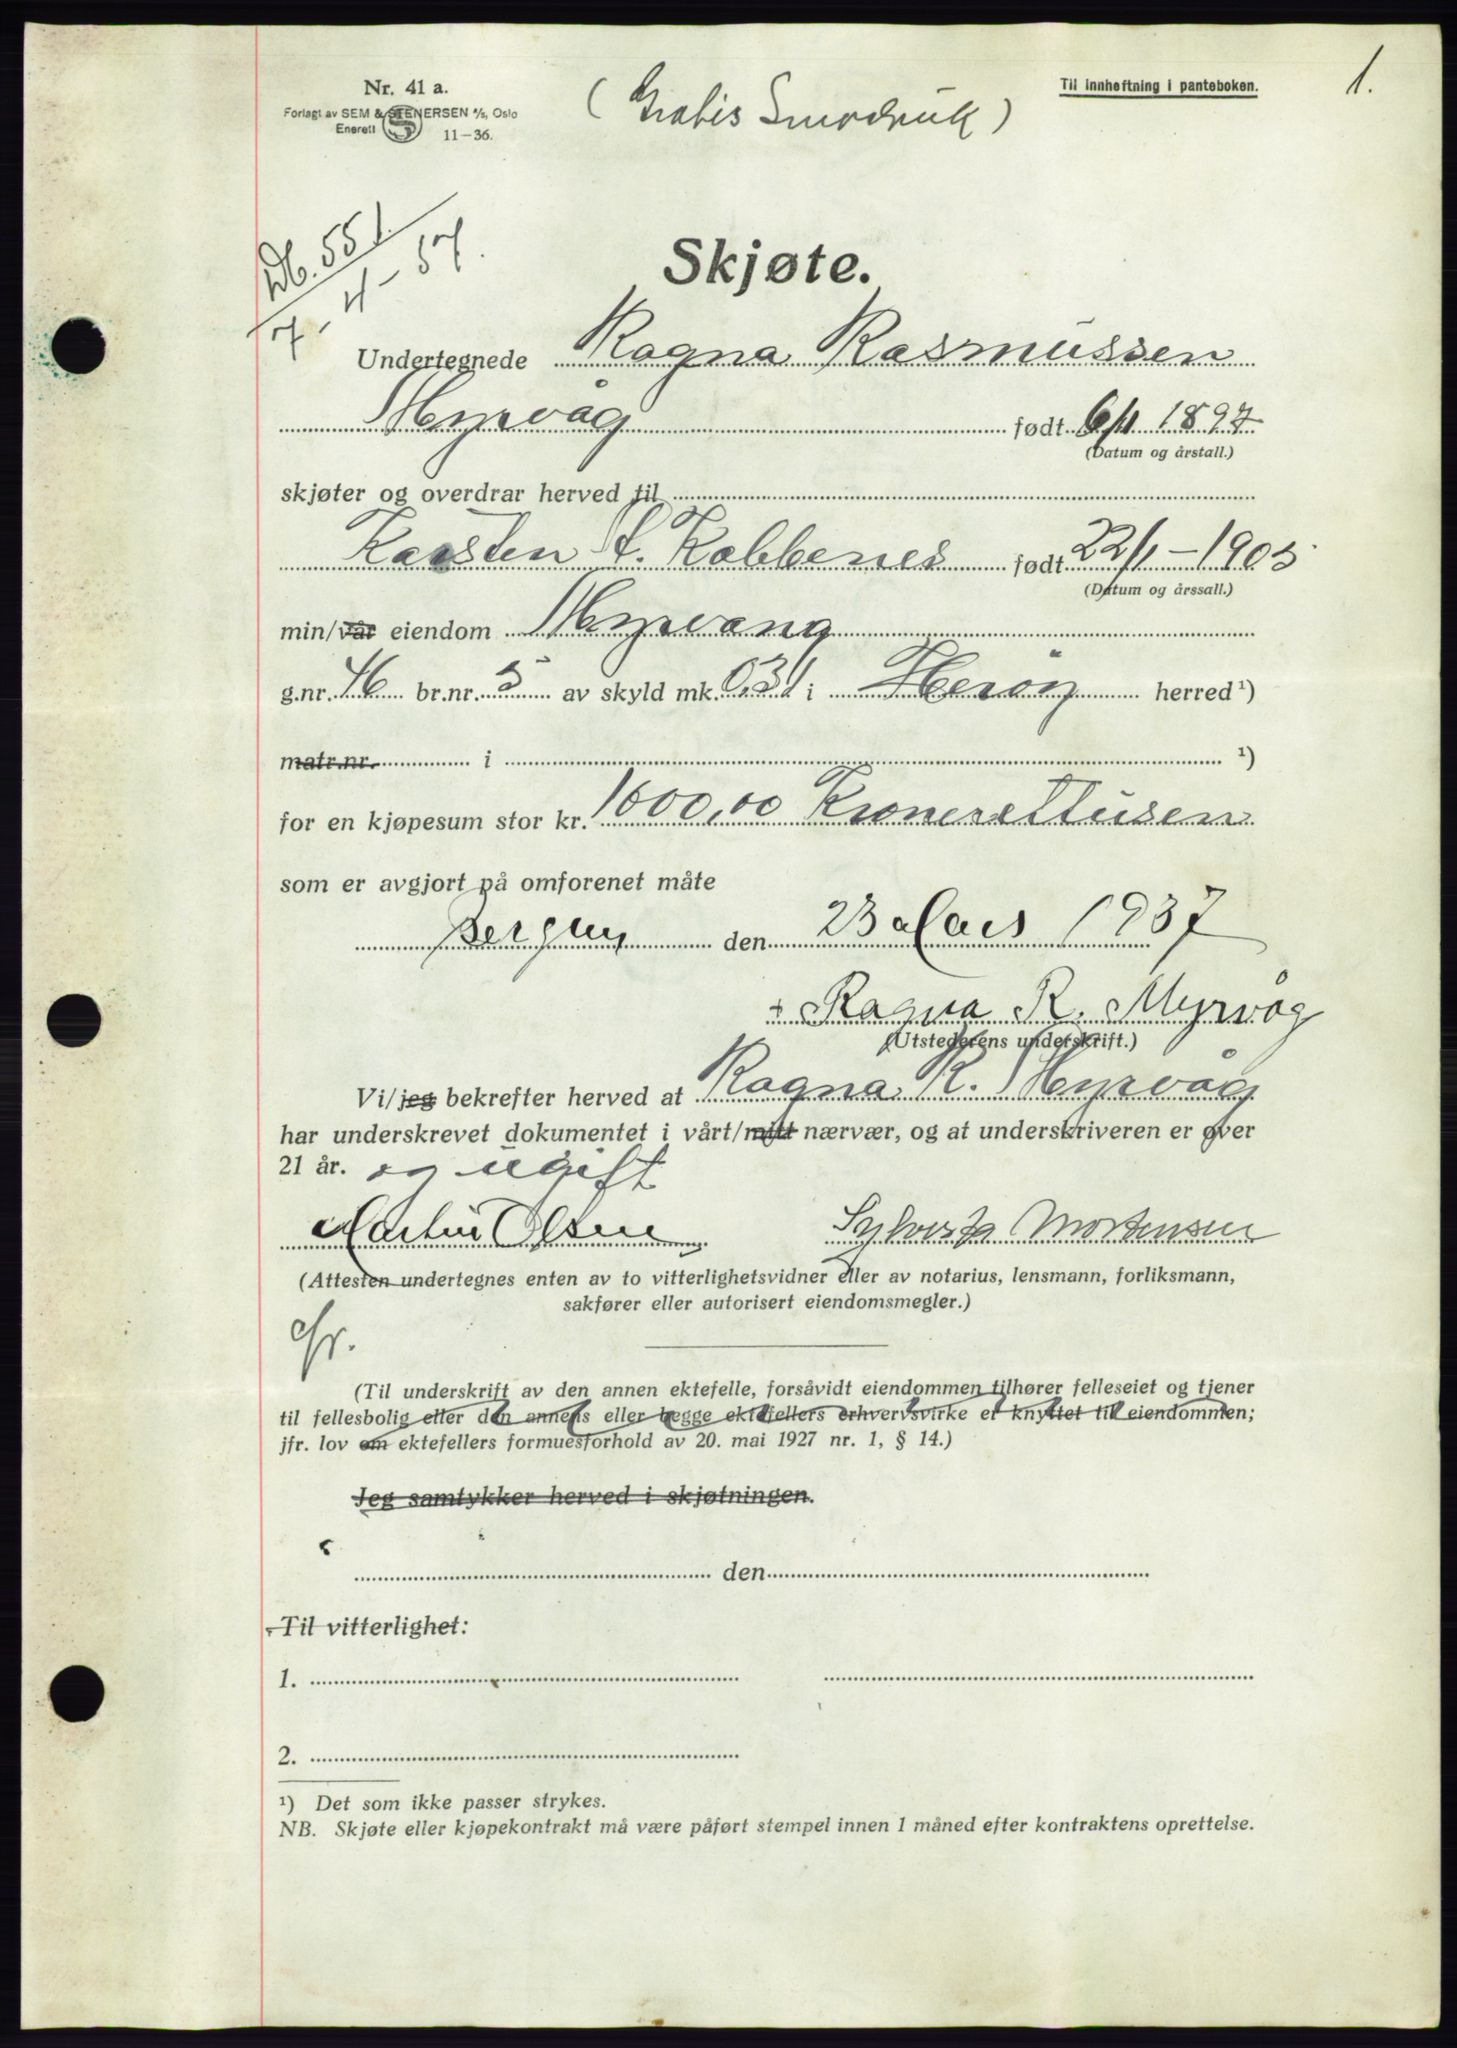 Nr. 41 a.
Forlagt av SEM & STENERSEN A/S, Oslo
Enerett 11-36.
Til innheftning i panteboken.
1.
(Gratis
Db. 551
7-4-37.
Skjøte.
Undertegnede Ragna Rasmussen
Myrvåg født 6/11 1897
(Datum og årstall.)
skjøter og overdrar herved til
Karsten A. Kobbenes født 22/1-1903
(Datum og årssall.)
min/vår eiendom Myrvang
g.nr. 46 br.nr. 5 av skyld mk. 0.31 i Herøy herred ¹)
matr.nr. i ¹)
for en kjøpesum stor kr. 1000,00 Kroneretttusen
som er avgjort på omforenet måte
Bergen den 23 Mars 1937
Ragna R. Myrvåg
(Utstederens underskrift.)
Vi/jeg bekrefter herved at Ragna R. Myrvåg
har underskrevet dokumentet i vårt/mitt nærvær, og at underskriveren er over
21 år. og ugift
Martin Olsen Sylvester Mortensen
(Attesten undertegnes enten av to vitterlighetsvidner eller av notarius, lensmann, forliksmann,
sakfører eller autorisert eiendomsmegler.)
(Til underskrift av den annen ektefelle, forsåvidt eiendommen tilhører felleseiet og tjener
til fellesbolig eller den annens eller begge ektefellers erhvervsvirke er knyttet til eiendommen;
jfr. lov om ektefellers formuesforhold av 20. mai 1927 nr. 1, § 14.)
Jeg samtykker herved i skjøtningen.
den
Til vitterlighet:
1.
2.
¹) Det som ikke passer strykes.
NB. Skjøte eller kjøpekontrakt må være påført stempel innen 1 måned efter kontraktens oprettelse.